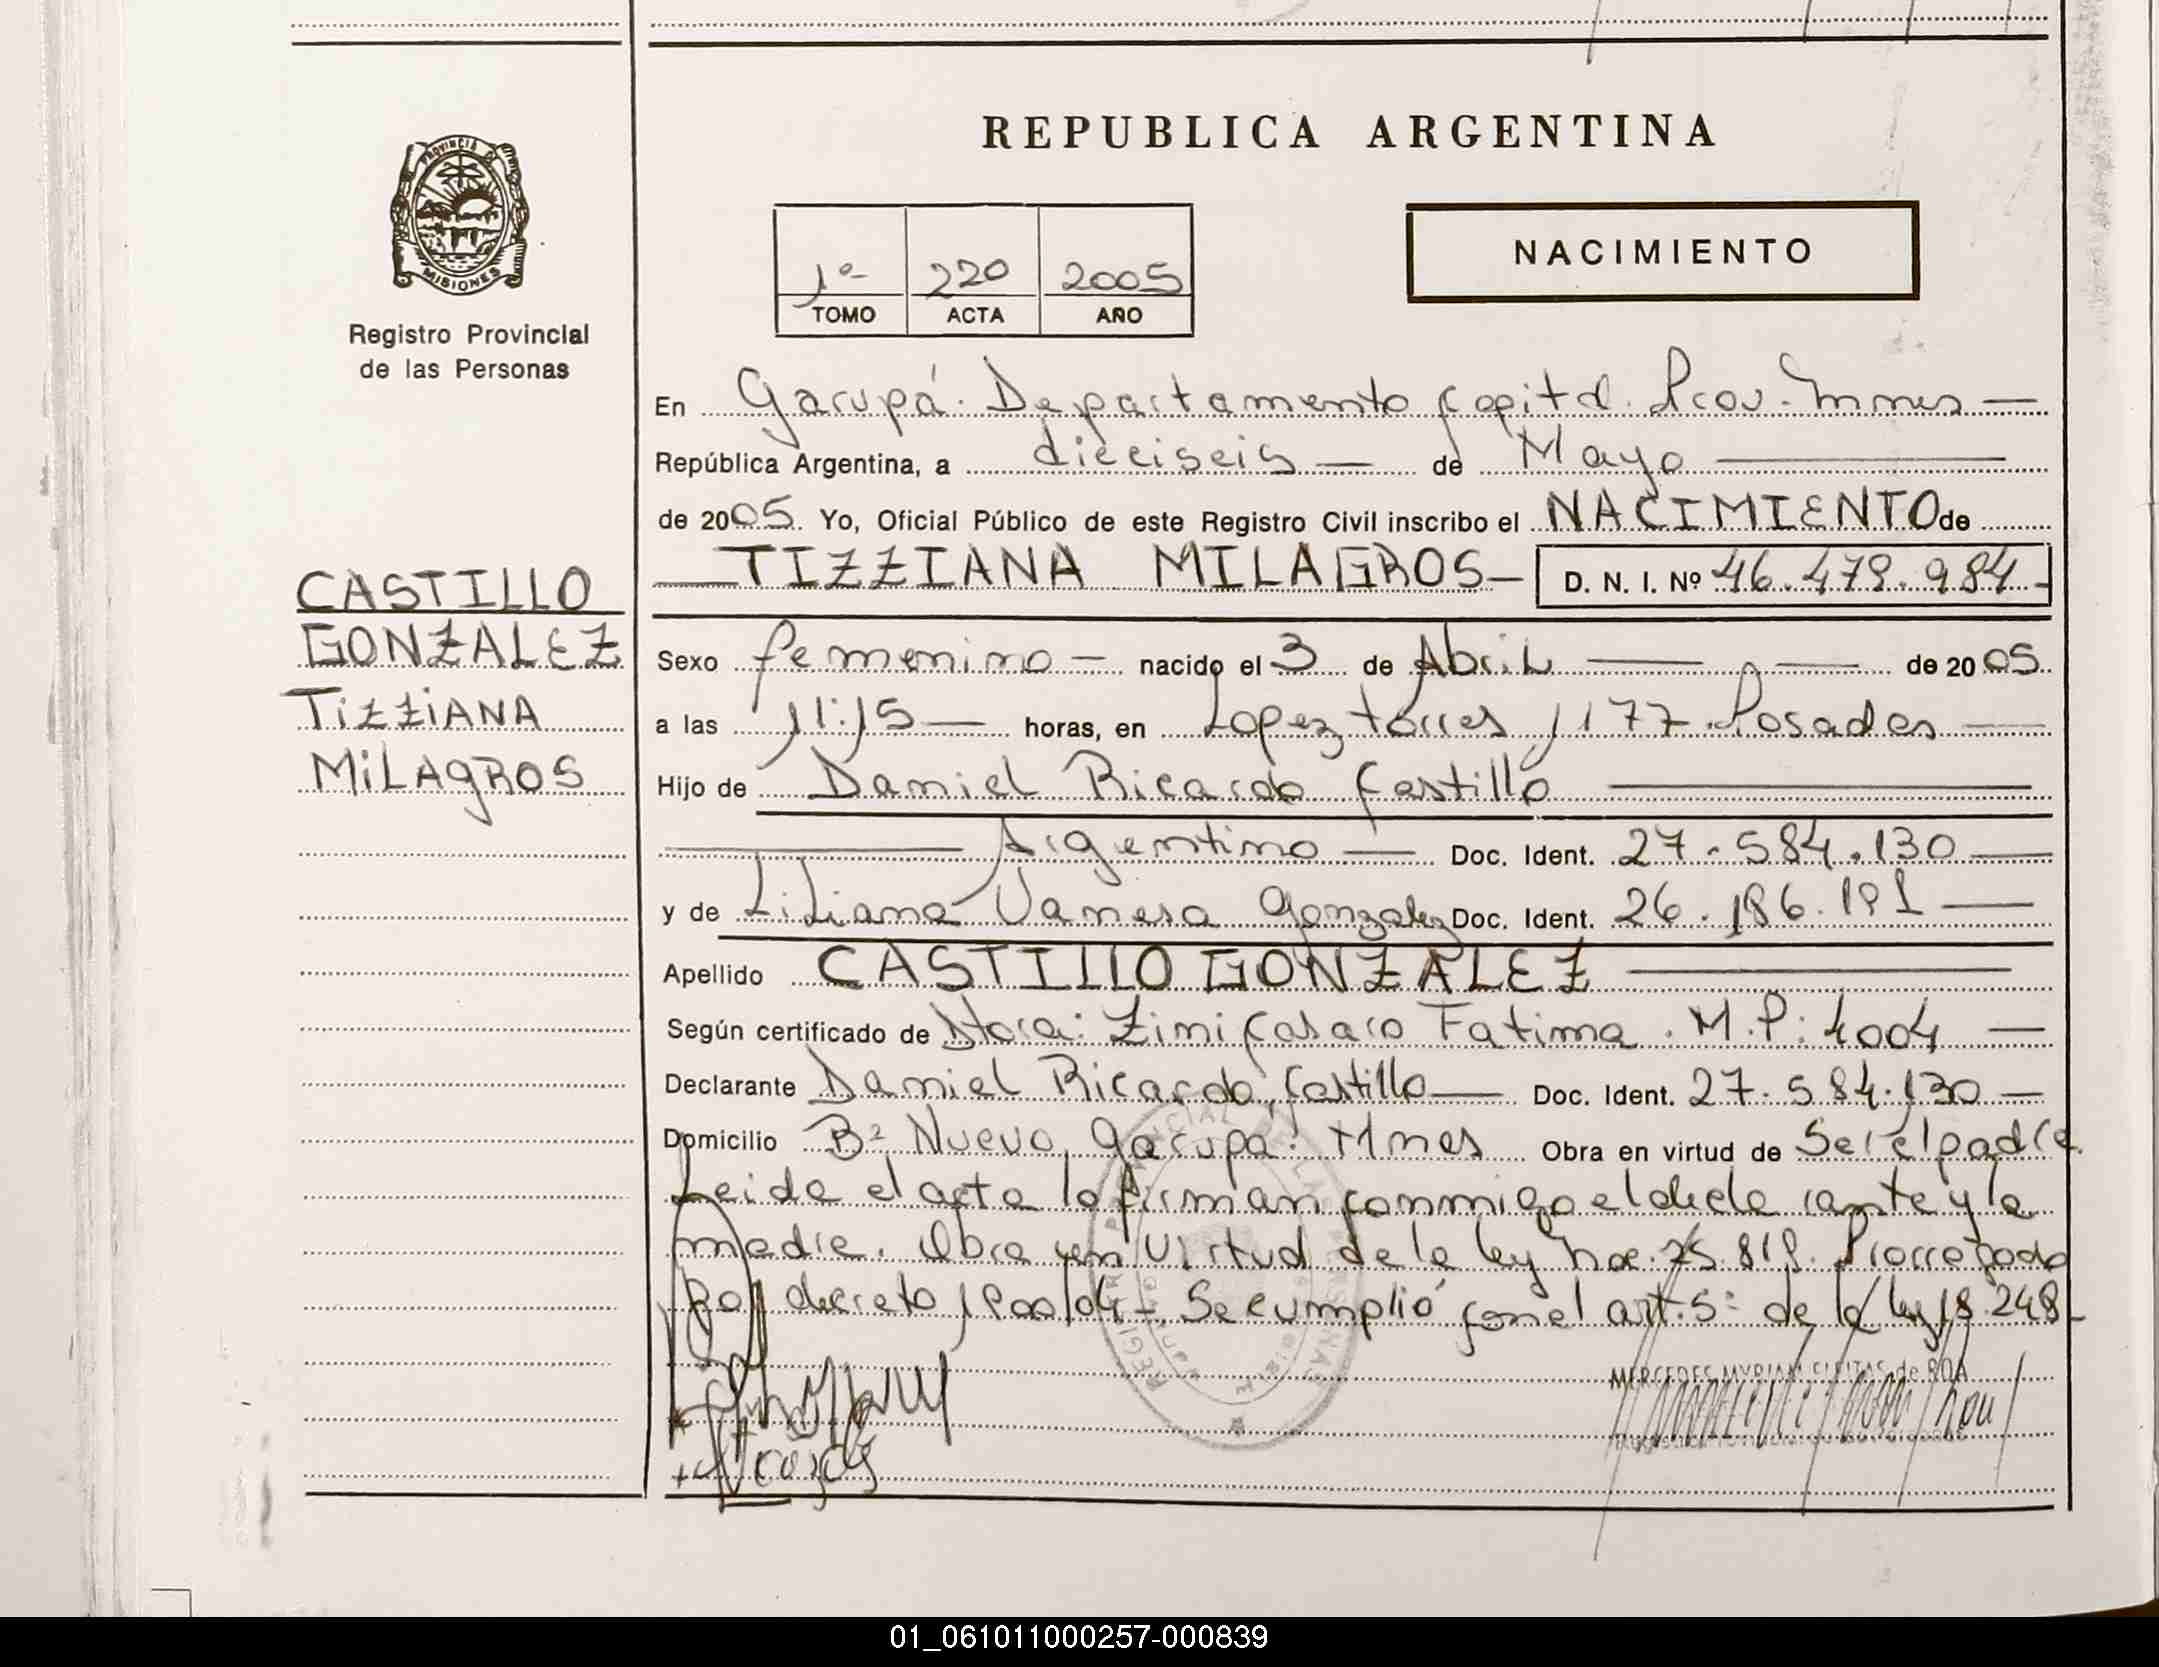 REPUBLICA ARGENTINA
PROVINCIA DE
MISIONES
Registro Provincial
de las Personas
NACIMIENTO
1º 220 2005
TOMO ACTA AÑO
En Garupá. Departamento Capital. Prov. Mnes
República Argentina, a dieciseis de Mayo
de 2005 Yo, Oficial Público de este Registro Civil inscribo el NACIMIENTO de
TIZZIANA MILAGROS D. N. I. Nº 46.479.984
CASTILLO
GONZALEZ
TIZZIANA
MILAGROS
Sexo femenino nacido el 3 de Abril de 2005
a las 11:15 horas, en Lopez torres 1177. Posadas
Hijo de Daniel Ricardo Castillo
Argentino Doc. Ident. 27.584.130
y de Liliana Vanesa Gonzalez Doc. Ident. 26.186.191
Apellido CASTILLO GONZALEZ
Según certificado de Dtora: Zimi Casaro Fatima. M.P: 4004
Declarante Daniel Ricardo Castillo Doc. Ident. 27.584.130
Domicilio Bº Nuevo Garupa. Mnes Obra en virtud de Ser el padre
Leida el acta la firman conmigo el declarante y la
madre. Obra en virtud de la ley nac. 25.819. Prorrogado
por decreto Se cumplió con el art. 5º de la ley 18.248
MERCEDES MYRIAM de ROA
01_061011000257-000839